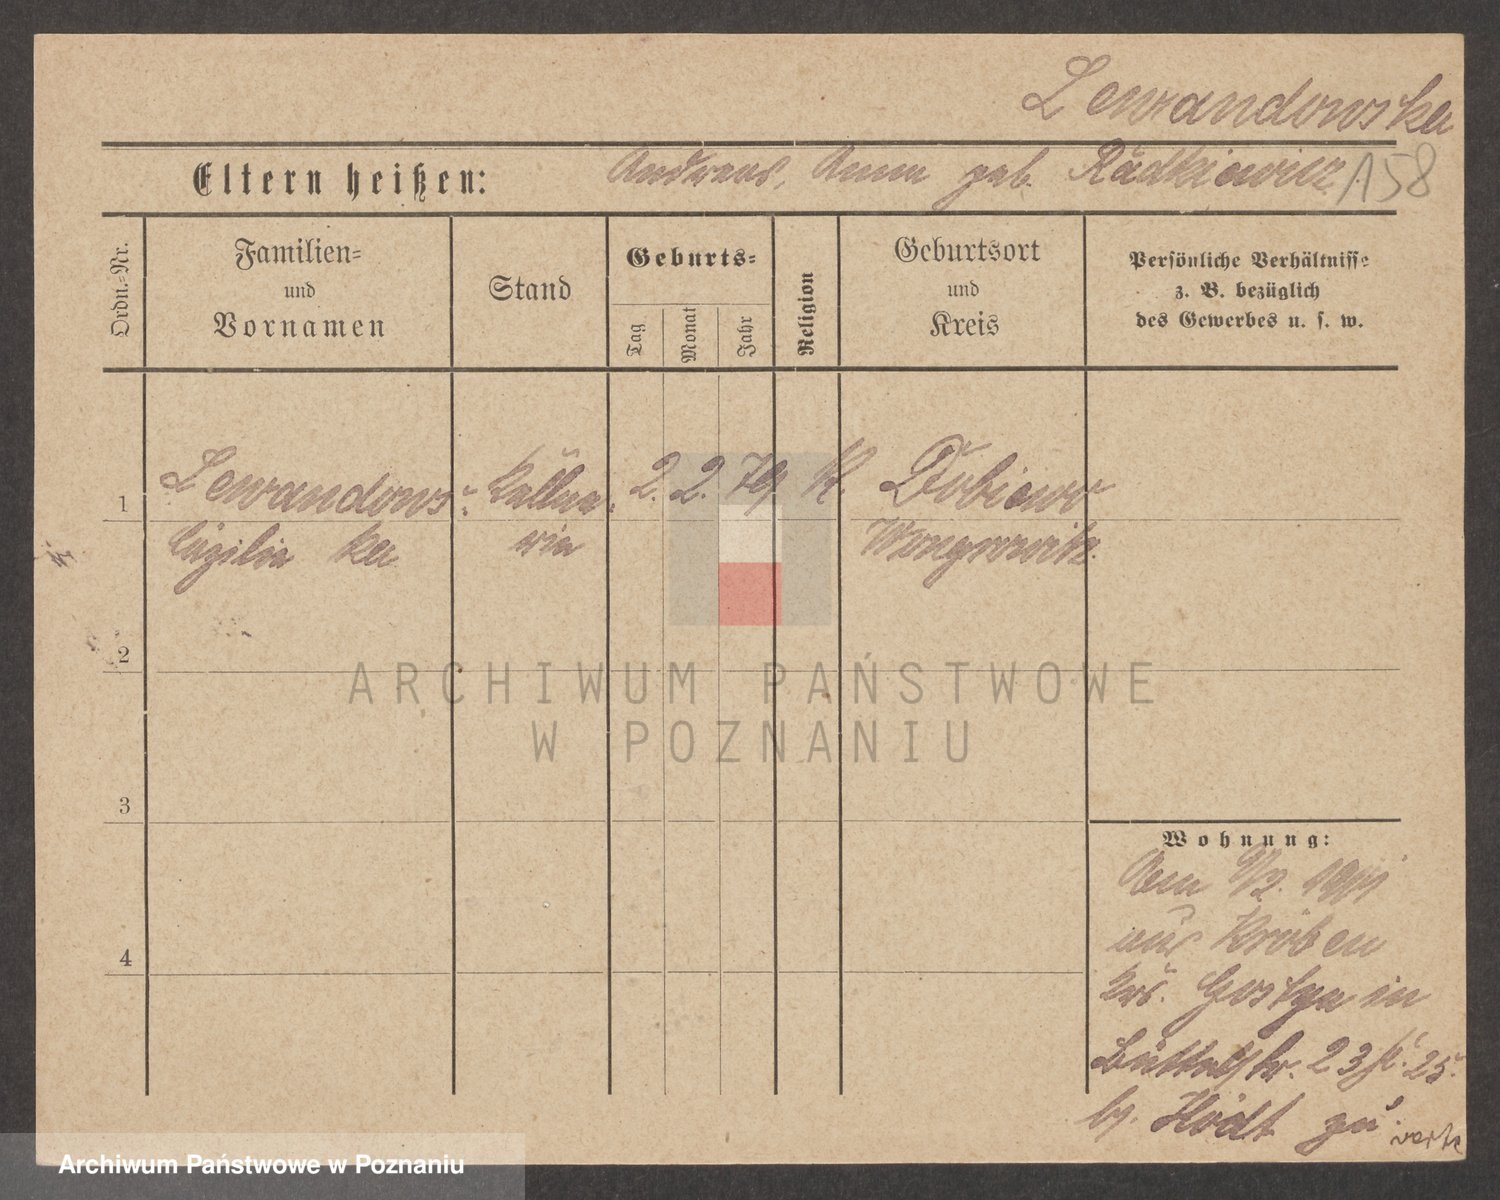 Lewandowska
Eltern heißen: Andreas, Anna geb. Radtkiewicz 158
Ordn.-Nr.
Familien-
und
Vornamen
Stand
Geburts-
Tag
Monat
Jahr
Religion
Geburtsort
und
Kreis
Persönliche Verhältnisse
z. B. bezüglich
des Gewerbes u. s. w.
1 Lewandows- Kellne- 2. 2. 79 K.
Cäzilia ka rin Wongrowitz
2
3
4
Wohnung:
Am
aus Kröben
Krs. Gostyn in
Büttelstr. 23 25
zu
verte
ARCHIWUM PAŃSTWOWE
W POZNANIU
Archiwum Państwowe w Poznaniu